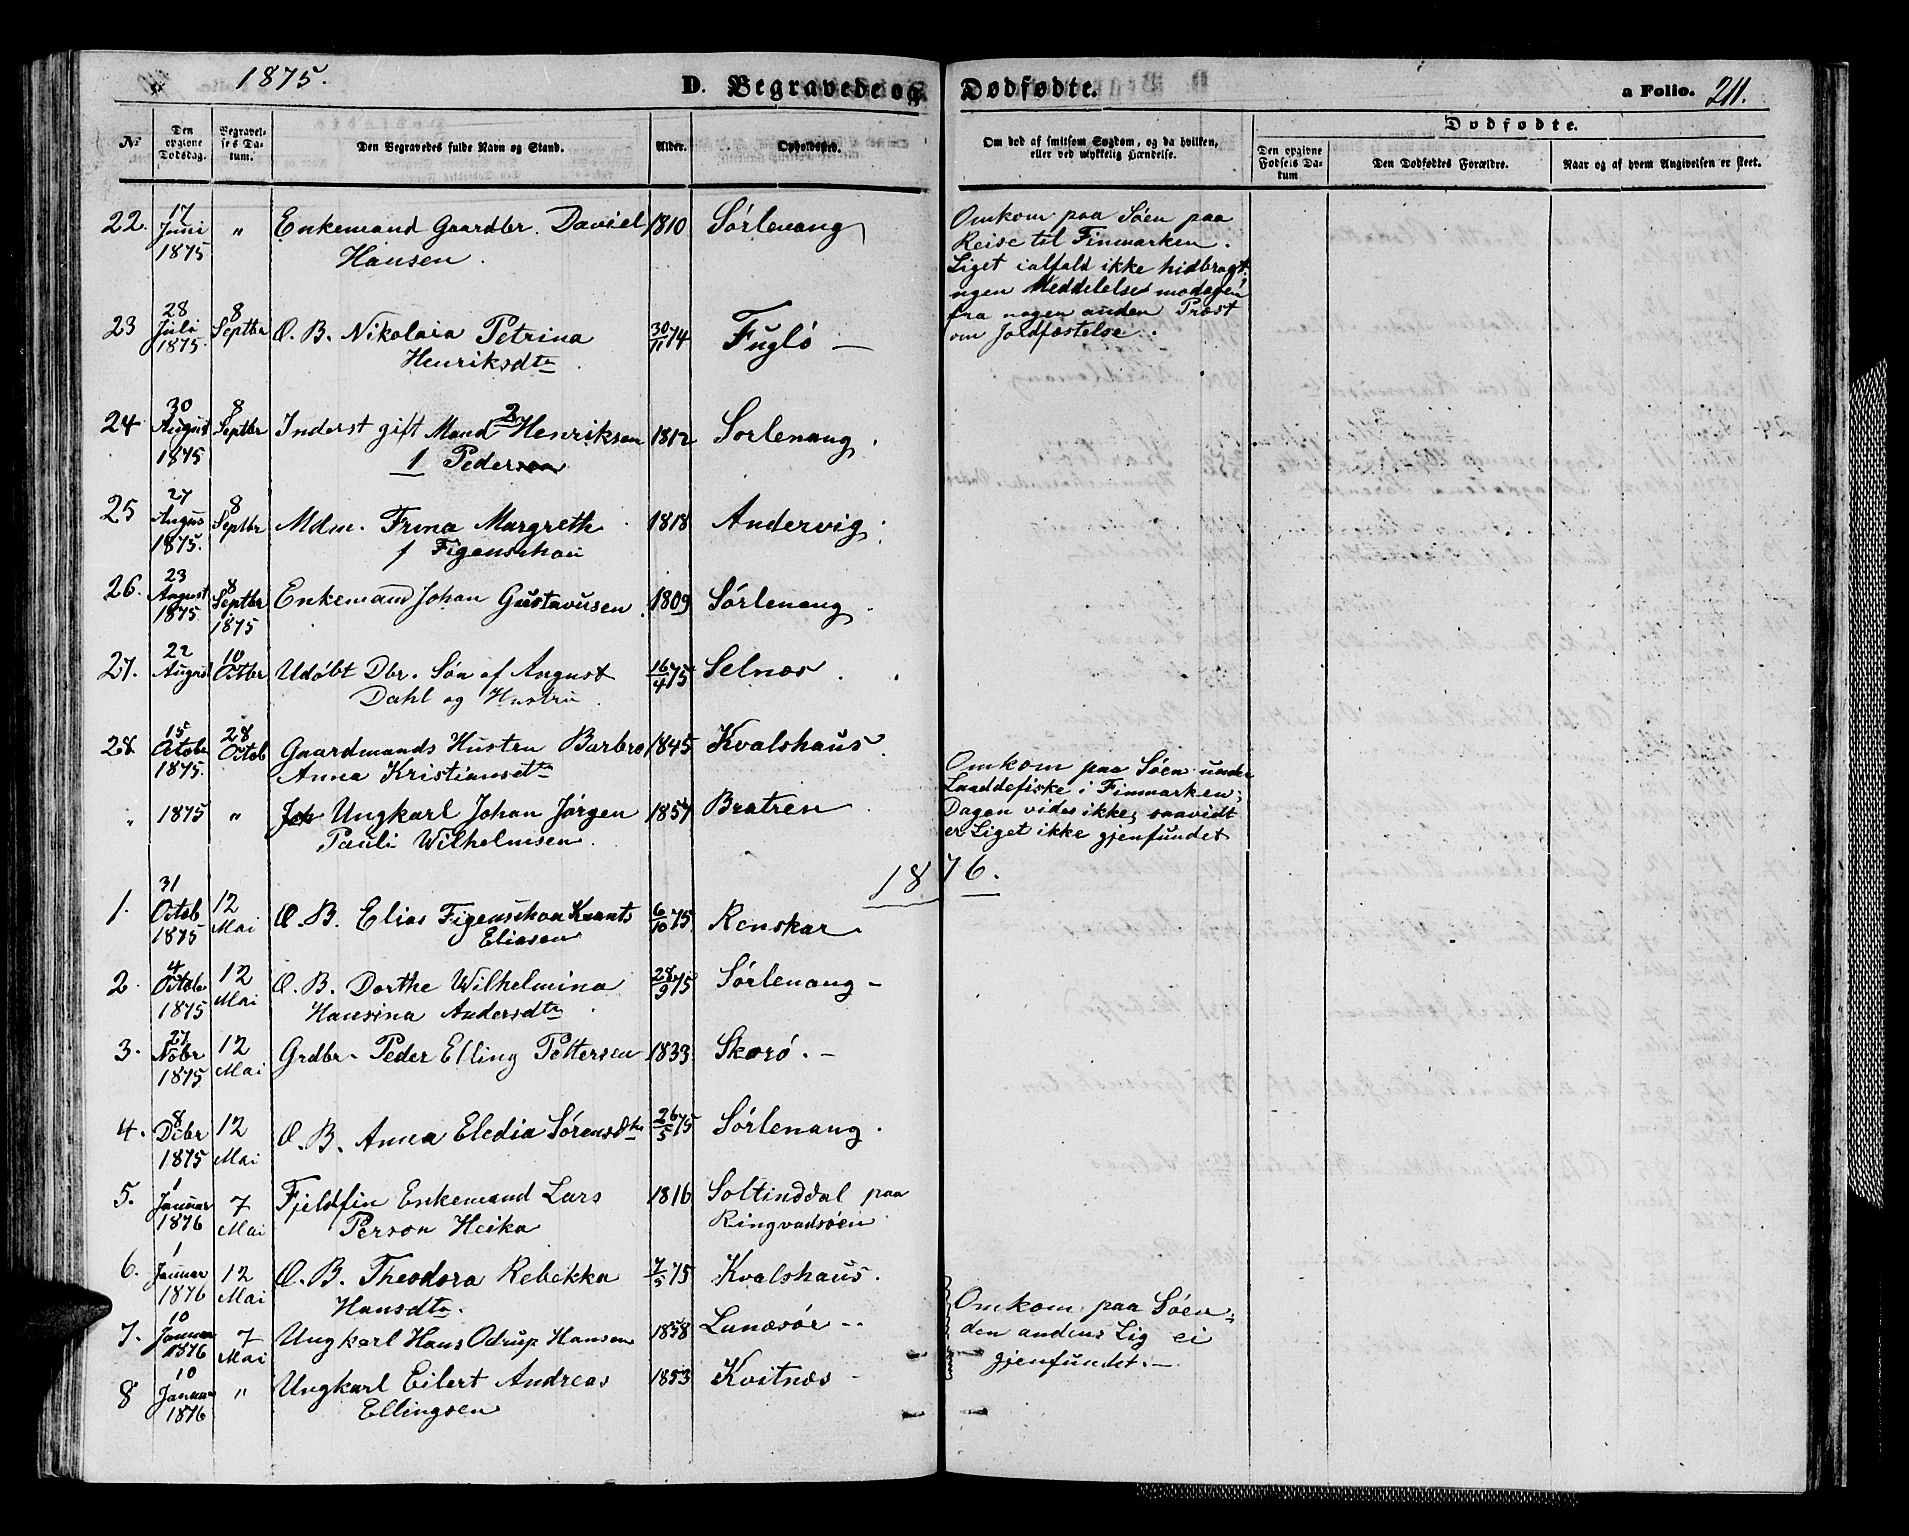 1875.
D. Begravede og Dødfødte.
a Folio. 211.
No
Den opgivne Dødsdag.
Begravelses Datum.
Den Begravedes fulde Navn og Stand.
Alder.
Opholdssted.
Om død af smitsom Sygdom, og da hvilken, eller ved ulykkelig Hændelse.
Dødfødte.
Den opgivne Fødsels Datum
Den Dødfødtes Forældre.
Naar og af hvem Angivelsen er skeet.
22. 17 Juni 1875 " Enkemand Gaardbr. Daniel 1810 Sörlenang
Hansen.
Omkom paa Söen paa
Reise til Finmarken.
Liget ialfald ikke hidbragt.
ngen Meddelelse modagen
fra nogen anden Præst
om Jordfæstelse.
23 28 Juli 1875 8 Septbr O. B. Nikolaia Petrina 30/11 74 Fuglö —
Henriksdtr.
24 30 August 1875 8 Septbr Inderst gift Mand 2 Henriksen 1812 Sörlenang.
1 Pederson
25 27 Augus 1875. 8 Septbr Mdm. Frina Margrethe 1818 Andervig.
f Figenschou
26. 23 August 1875 8 Septbr 1875 Enkemand Johan Gustavusen. 1809 Sörlenang.
27. 22 August 10 Octbr Udöbt Dbr. Sön af August 16/4 75 Selnæs.
Dahl og Hustru.
28 15 Octobr 1875. 28 Octob Gaardmands Hustru Barbro 1845 Kvalshaus.
Anna Kristiansdtr
" 1875 " Joh Ungkarl Johan Jörgen 1857 Bratren
Pauli Wilhelmsen.
Omkom paa Söen under
Loddefiske i Finmarken;
Dagen vides ikke, saavidt
er Liget ikke gjenfundet
1876.
1. 31 Octob 1875 12 Mai O. B. Elias Figenschou 6/10 75 Renskar.
Eliasen
2. 4 Octob 1875 12 Mai O. B. Dorthe Wilhelmina 28/9 75 Sörlenang -
Hansina Andersdtr.
3. 27 Nobr 1875 12 Mai Grdbr. Peder Elling Pettersen 1833 Skorö. -
4. 8 Decbr 1875 12 Mai O. B. Anna Eledia Sörensdtr 26/5 75 Sörlenang.
5. 1 Januar 1876 7 Mai Fjeldfin Enkemand Lars 1816 Soltinddal paa
Person Heika Ringvadsöen
6. 1 Januar 1876 12 Mai O. B. Theodora Rebekka 7/5 75 Kvalshaus.
Hansdtr.
7. 10 Januar 1876 7 Mai Ungkarl Hans Odrup Hansen 1858 Lanæsör --
Omkom paa Söen,
den andens Lig ei
gjenfundet. —
8 10 Januar 1876 " Ungkarl Eilert Andreas 1853 Kvitnæs -
Ellingsen